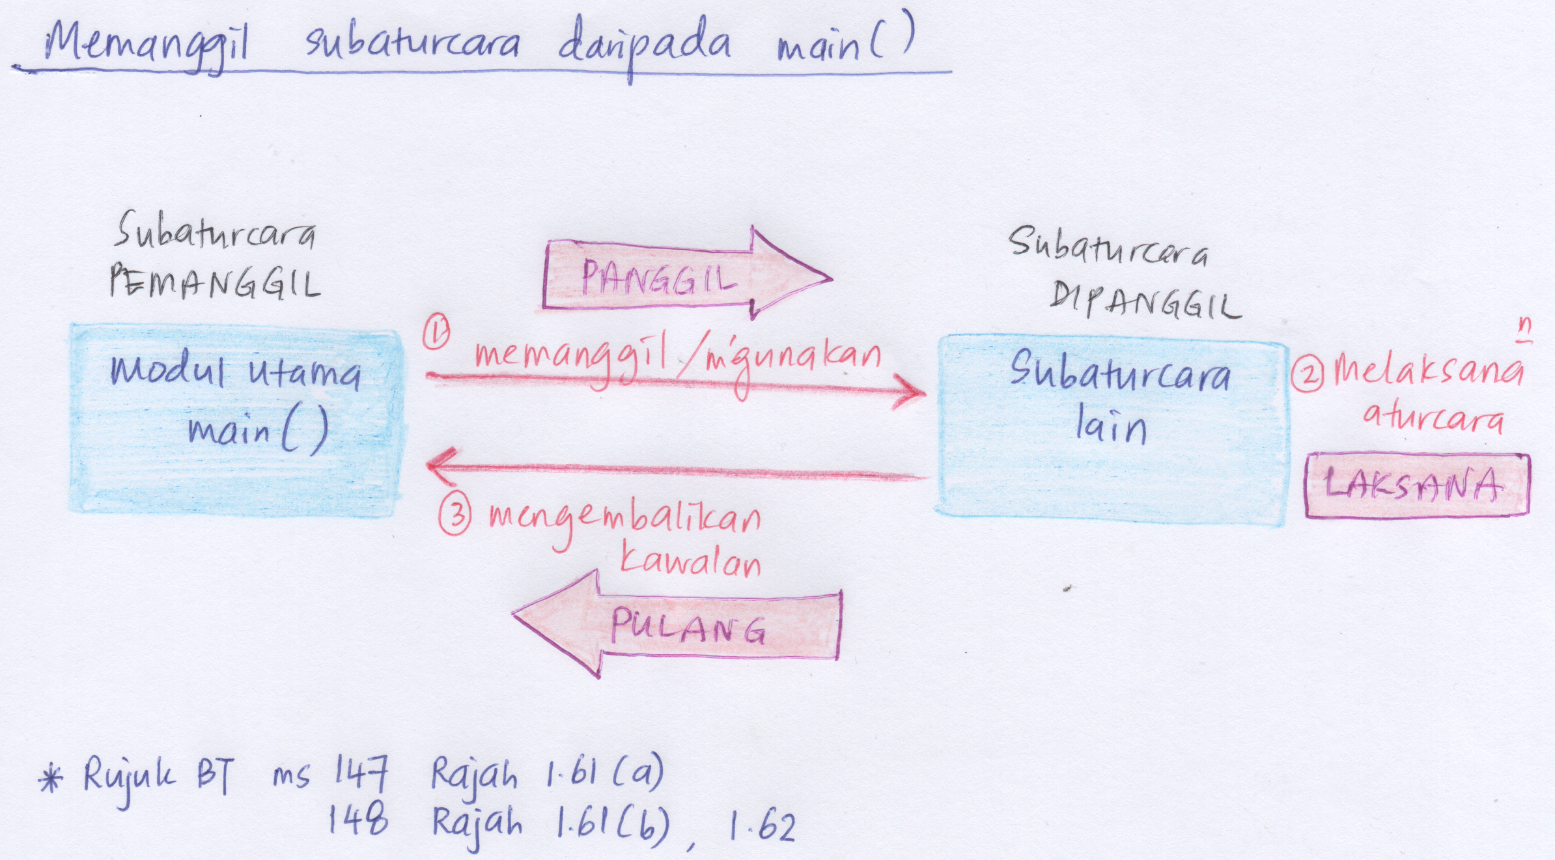 Memanggil subaturcara daripada main()
Subaturcara
PEMANGGIL
PANGGIL
Subaturcara
DIPANGGIL
Modul utama
main()
① memanggil/m'gunakan
Subaturcara
lain
② Melaksana n
aturcara
LAKSANA
③ mengembalikan
kawalan
PULANG
* Rujuk BT ms 147 Rajah 1.61(a)
148 Rajah 1.61(b), 1.62